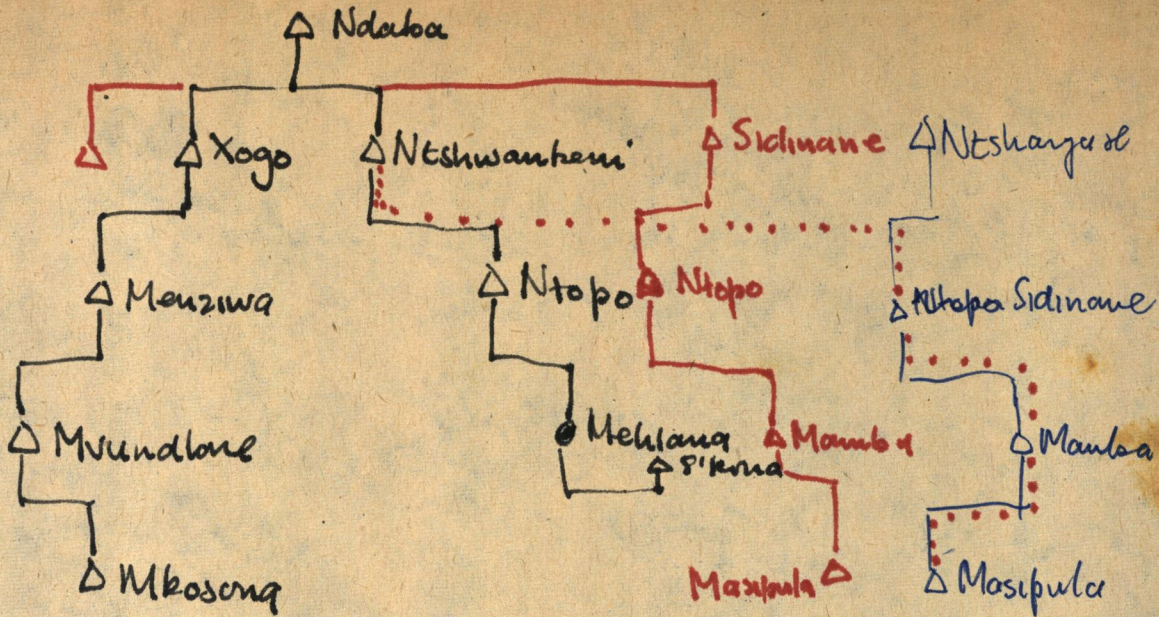 Ndaba
Xogo
Ntshwankeni
Sidinane
Menziwa
Ntopo
Ntopo
Ntopo Sidinane
Mvundlane
Mehlana
Mamba
Mamba
Mkosona
Masipula
Masipula